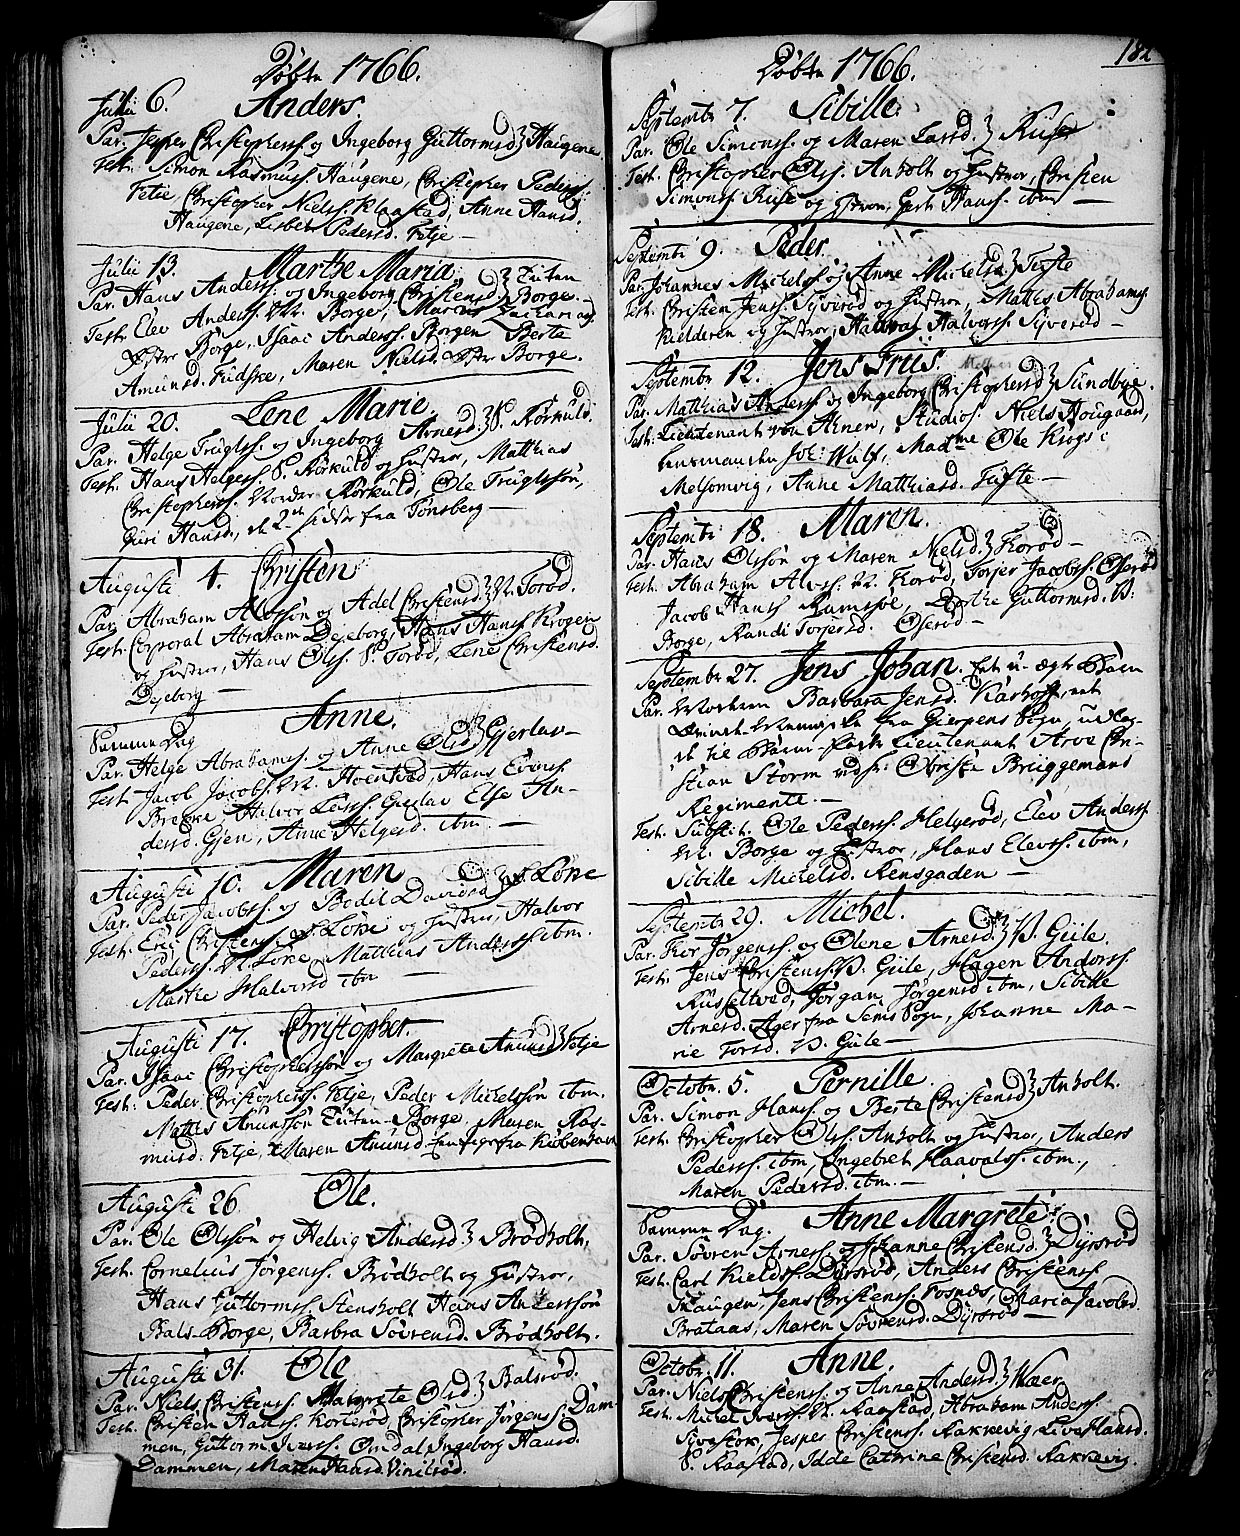 Døbte 1766.
Julii 6. Anders.
Par. Jesper Christophers. og Ingeborg Guttormsd. Haugene.
Test. Simon Rasmuss. Haugene, Christopher Peders.
Fetie, Christopher Niels. Klaastad, Anne Hansd.
Haugene, Lisbet Pedersd. Fetje —
Julii 13. Marthe Maria
Par. Hans Anderss. og Ingeborg Christensd. Liten Borge.
Test. Elev Anderss. W. Borge, Marcus Zacharias
Øster Borge, Isaac Anderss. Borgen Berte
Amunsd. Fridske, Maren Nielsd. Øster Borge.
Julii 20. Lene Marie.
Par. Helge Truglss. og Ingeborg Arnesd. S. Rørkuld.
Test. Hans Helgess. S. Rørkuld og hustroe, Matthias
Christophers. Nordre Rørkuld, Ole Truglssøn,
Guri Hansd. de 2de sidste fra Tønsberg —
Augusti 4. Christen
Par. Abraham Alvssøn og Adel Christensd. N. Torød.
Test. Corporal Abraham Dejeborg, Hans Hanss. Krogen
og hustroe, Hans Olss. S. Torød, Lene Christensd.
Dejeborg —
Samme Dag Anne.
Par. Helge Abrahams. og Anne Olsd. Gjerlav —
Test. Jacob Jacobs. W. Hoentved, Hans Evens.
Brekke, Halvor Larss. Gierlav Else An-
dersd. Gjen, Anne Helgesd. ibm. —
Augusti 10. Maren
Par. Peder Jacobss. og Bodil Davidsd. W. Løke
Test. Eric Christens. W. Løke og hustroe, Halvor
Pederss. W. Løke, Matthias Anderss. ibm.
Marthe Halvorsd. ibm —
Augusti 17. Christopher.
Par. Isaac Christopherssøn og Margrete Amunsd. Fetje
Test. Peder Christophers. Fetje, Peder Michelssøn ibm.
Mattis Anunssøn Liten-Borge, Maren Ras-
musd. Fetje, Maren Amunsd. fra Kiøbenhavn
Augusti 26. Ole.
Par. Ole Olssøn og Helvig Andersd. Brødholt,
Test. Cornelius Jørgenss. Brødholt og hustroe,
Hans Guttormss. Stensholt Hans Anderssøn
Bals-Borge, Barbra Søvrensd. Brødholt.
Augusti 31. Ole
Par. Niels Christenss. Margrete Olsd. Balsrød.
Test. Christen Hanss. Korterød, Christopher Jørgens. Dam-
men, Guttorm Iverss. Omdal, Ingeborg Hansd.
Dammen, Maren Hansd. Vinilrød.
182
Døbte 1766.
Septembr 7. Sibille.
Par. Ole Simonss. og Maren Larsd. Ruse
Test. Christopher Olss. Anholt og hustroe, Christen
Simonss. Ruse og hustroe. Gert Hanss. ibm —
Septembr 9. Peder.
Par. Johannes Michelss. og Anne Michelsd. Tufte
Test. Christen Jenss. Syverød og hustroe, Mattis Abrahams.
Kielderen og hustroe, Halvor Halvorss. Syverød —
Septembr 12. Jens Friis.
Par. Matthias Anderss. og Ingeborg Christophersd. Sundbye.
Test. Lieutenant von Ahnen, Studios. Niels Hougaard,
Lensmanden Joh: Wulf, Madme Ole Krogs i
Melsomvig, Anne Matthiasd. Tufte —
Septembr 18. Maren.
Par. Hans Olssøn og Maren Nielsd. Korød —
Test. Abraham Alvss. W. Korød, Torjer Jacobss. Oserød
Jacob Hanss Ramsøe, Dorthe Guttormsd. V:
Borge, Randi Torjersd. Oserød —
Septembr 27. Jens Johan. Et u-ægte Barn
Par. Moderen Barbara Jensd. Karhoff, et
Qvinde-Menniske fra Gierpens Sogn, udlag-
de til Barne-Fader Lieutenant Arve Chri-
stian Storm ved Obriste Brüggemans
Regimente. —
Test. Substit. Ole Pederss. Helgerød, Elev Anderss.
W. Borge og hustroe, Hans Elevss. ibm,
Sibille Michelsd. Rensgaden —
Septembr 29. Michel.
Par. Thor Jørgenss. og Olene Arnesd. V. Giile.
Test. Jens Christenss. V. Giile, Hagen Anderss.
Russeltved, Jørgan Jørgensd ibm, Sibille
Arnesd. Ager fra Sems Sogn, Johanne Ma-
rie Torsd. V. Giile —
Octobr. 5. Pernille.
Par. Simon Hanss. og Berte Christensd. Anholt.
Test. Christopher Olss. Anholt og hustroe, Anders
Pederss. ibm, Ingebret Haavalss. ibm.,
Maren Pedersd. ibm. —
Samme Dag. Anne Margrete.
Par. Søvren Arness. og Johanne Christensd. Dyrsrød
Test. Carl Kieldss. Dyrsrød, Anders Christenss.
Skaugen, Jens Christenss. Fosnes, Maria Jacobsd.
Brataas, Maren Søvrensd. Dyrsrød —
Octobr. 11. Anne.
Par. Niels Christenss. og Anne Andersd. Wær.
Test. Michel Iverss. N. Raastad, Abraham Anderss.
Sivestok, Jesper Christenss. Rakkevig, Liva Hansd.
S. Raastad, Idde Cathrine Christensd. Rakkevig.